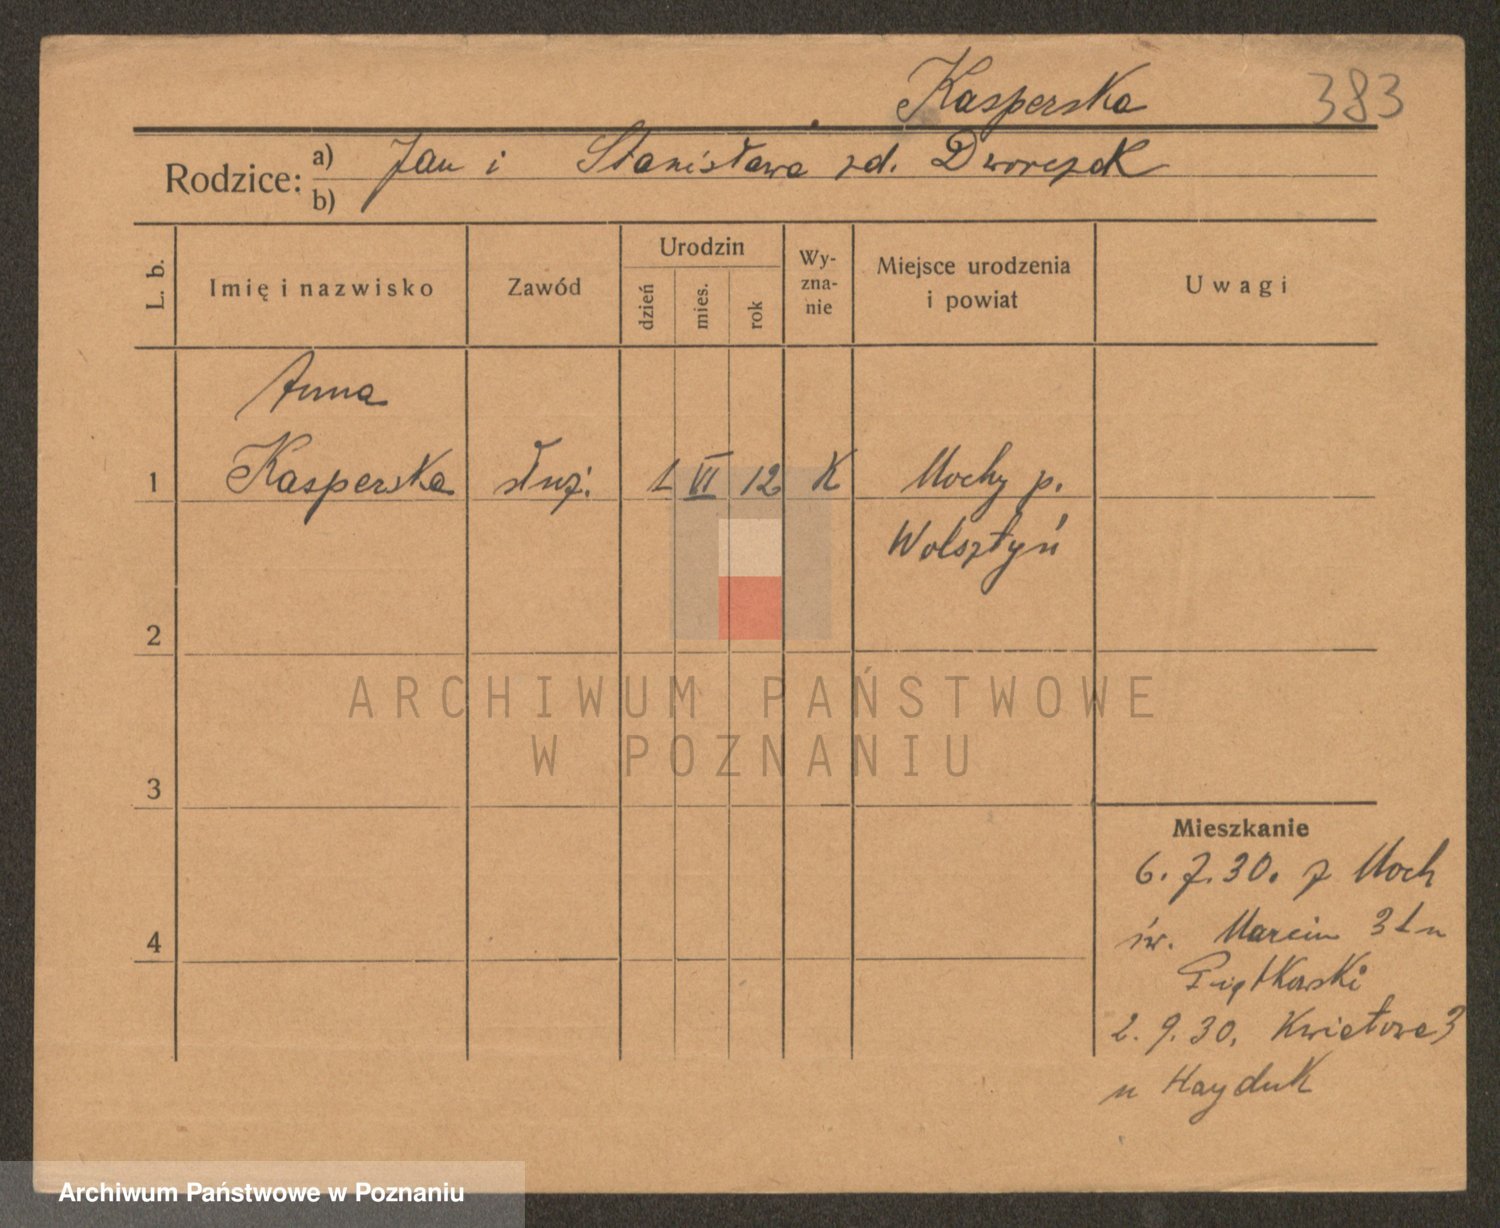 Kasperska 383
Rodzice: a) Jan i Stanisława zd. Dworczak
b)
L. b.
Imię i nazwisko
Zawód
Urodzin
dzień
mies.
rok
Wy-
zna-
nie
Miejsce urodzenia
i powiat
Uwagi
Anna
1 Kasperska służ. 1 VI 12 K Mochy p.
Wolsztyń
2
ARCHIWUM PAŃSTWOWE
W POZNANIU
3
Mieszkanie
6. 7. 30. z Moch
4
św. Marcin 31 u
Piątkowski
2. 9. 30. Kwiatowa 3
u Hayduk
Archiwum Państwowe w Poznaniu